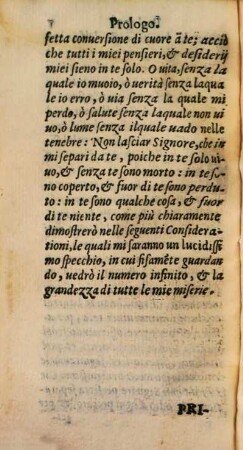 Prologo.
fetta conuersione di cuore à te; acciò
che tutti i miei pensieri, & desiderij
miei sieno in te solo. O uita, senza la
quale io muoio, ò uerità senza laqua
le io erro, ò uia senza la quale mi
perdo, ò salute senza laquale non ui
uo, ò lume senza ilquale uado nelle
tenebre: Non lasciar Signore, che io
mi separi da te, poiche in te solo ui-
uo, & senza te sono morto: in te so
no coperto, & fuor di te sono perdu
to: in te sono qualche cosa, & fuor
di te niente, come più chiaramente
dimostrerò nelle seguenti Considera-
tioni, le quali mi saranno un lucidiss
mo specchio, in cui fisamẽte guardan
do, uedrò il numero infinito, & la
grandezza di tutte le mie miserie.
PRI-